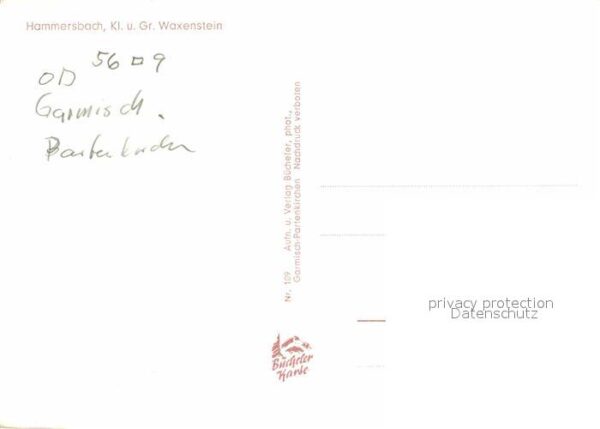 Hammersbach, Kl. u. Gr. Waxenstein
56 □ 9
OD
Garmisch.
Partenkirchen
Nr. 109 Aufn. u. Verlag Bücheler, phot.,
Garmisch-Partenkirchen Nachdruck verboten
Bücheler
Karte
privacy protection
Datenschutz